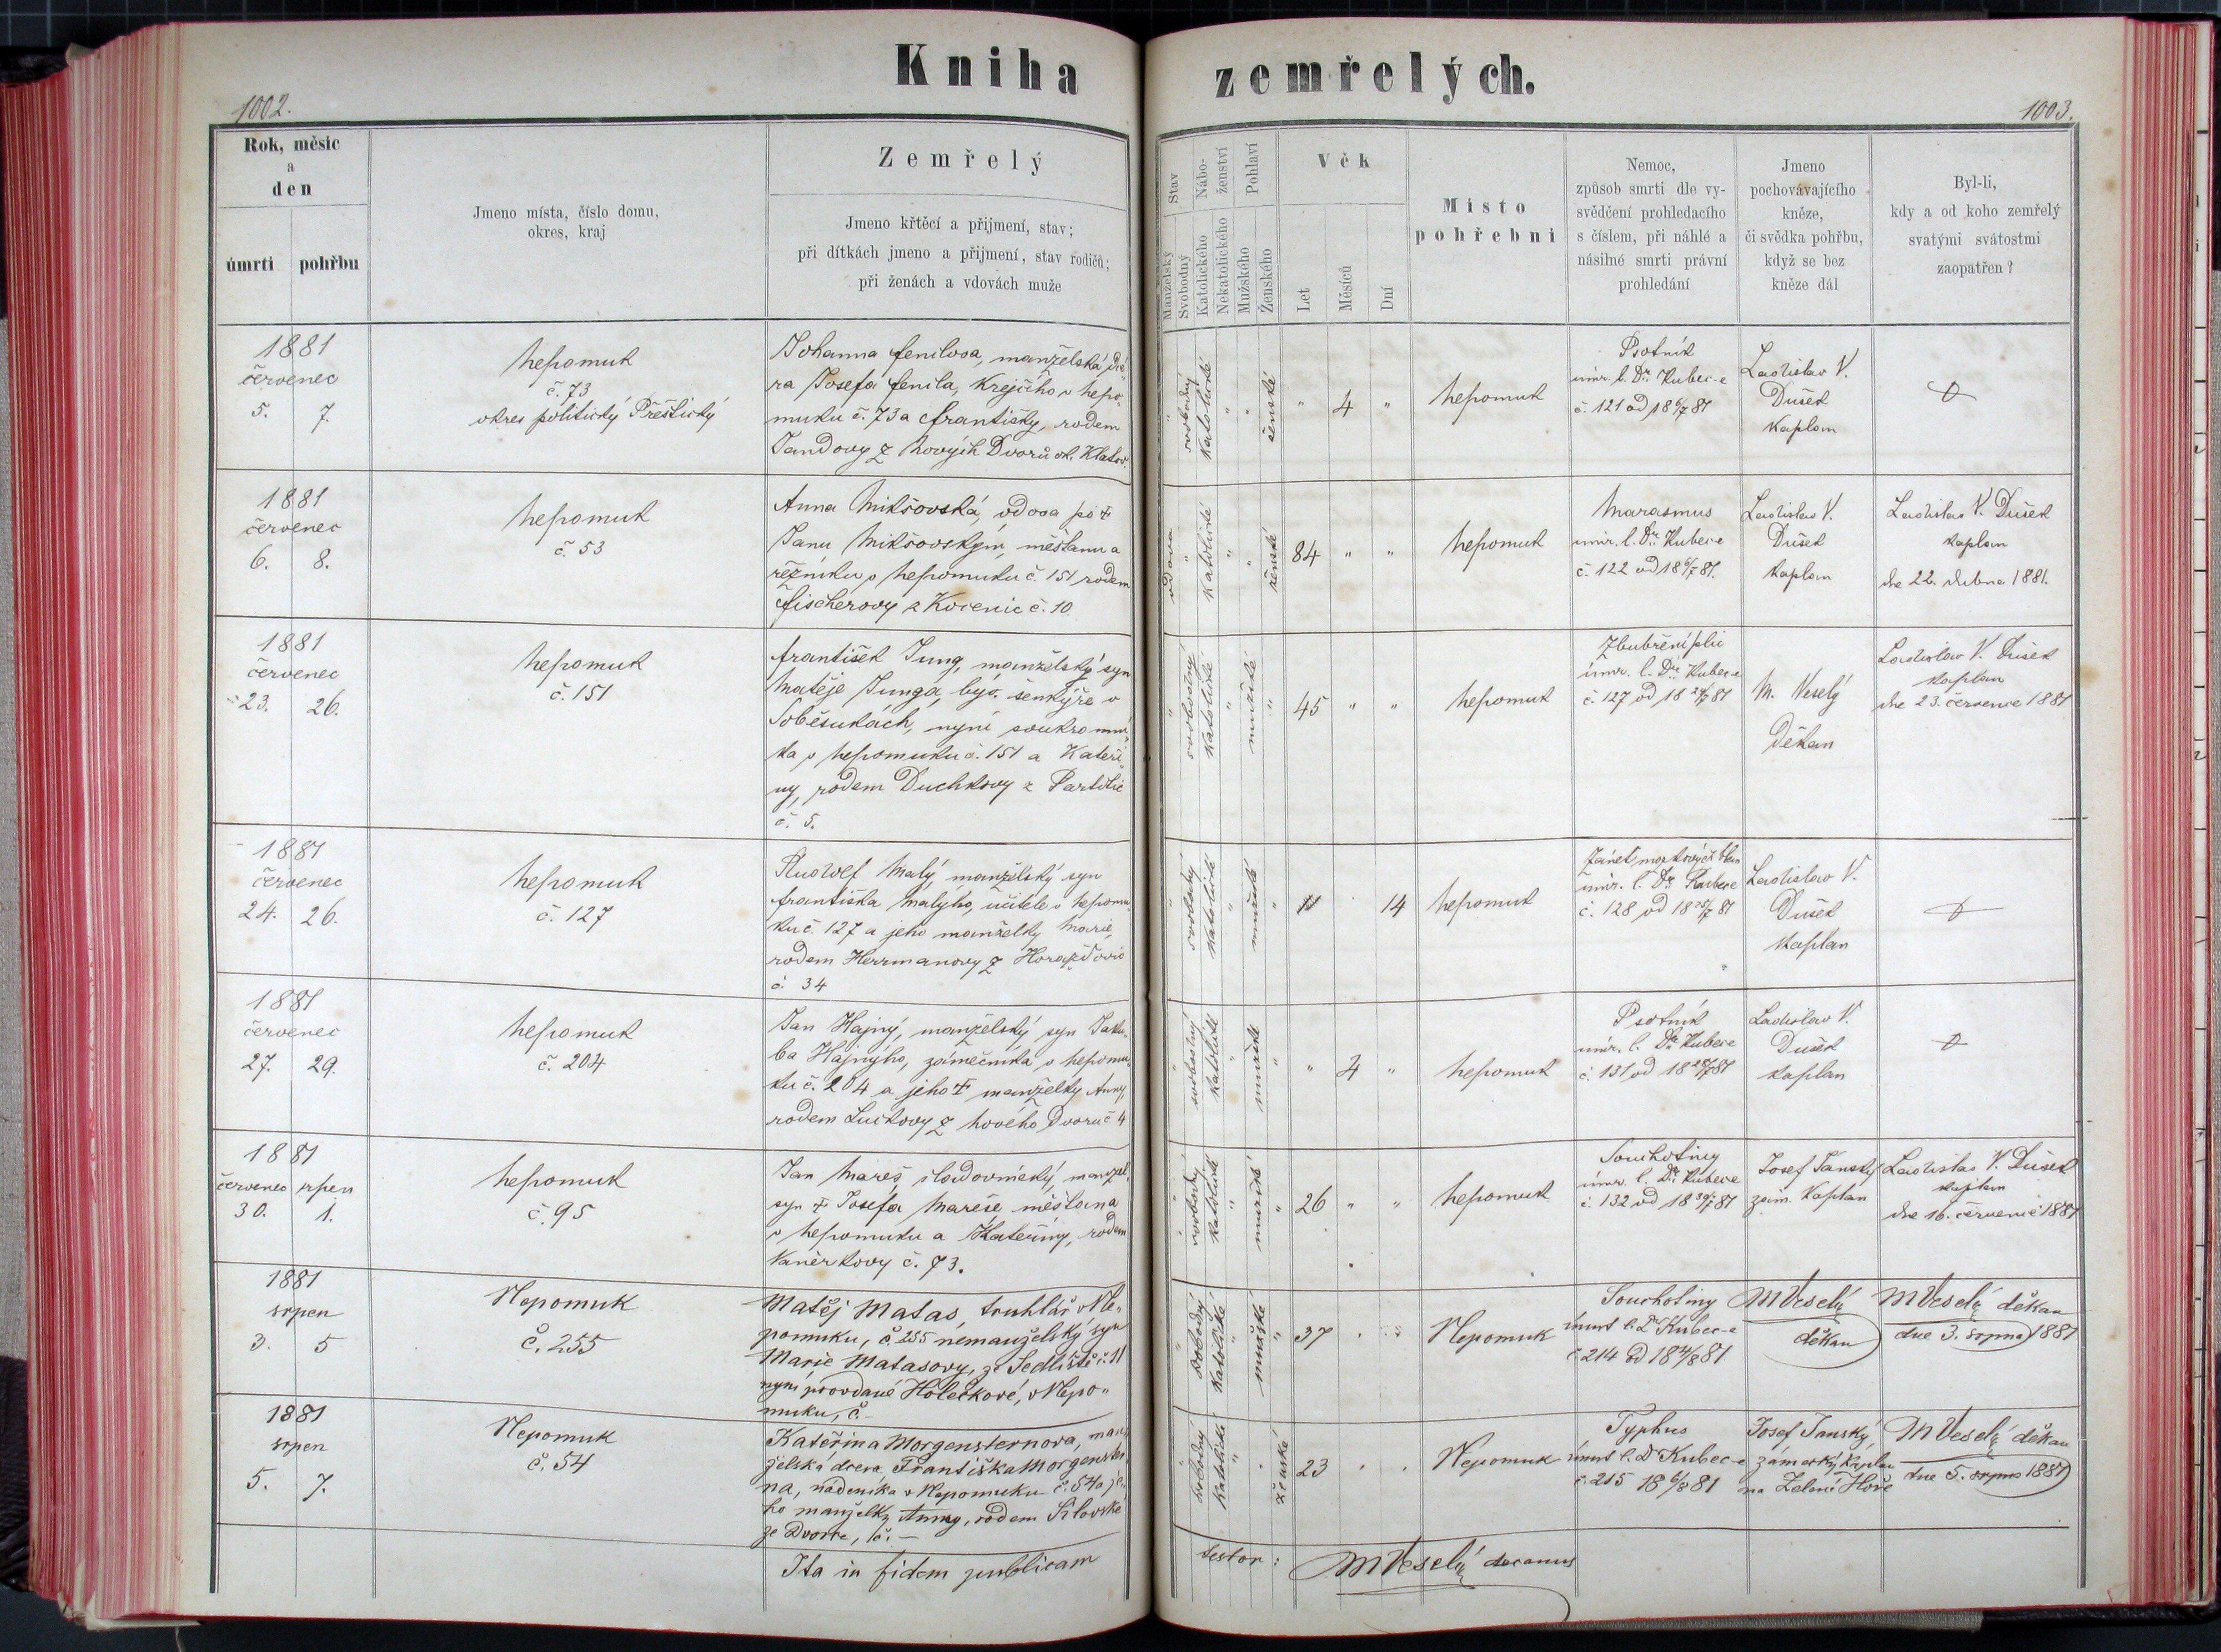 Kniha zemřelých.
1002.
1003.
Rok, měsíc
a
den
úmrtí pohřbu
Jmeno místa, číslo domu,
okres, kraj
Zemřelý
Jmeno křtěcí a přijmení, stav;
při dítkách jmeno a přijmení, stav rodičů;
při ženách a vdovách muže
Stav
Manželský
Svobodný
Nábo-
ženství
Katolického
Nekatolického
Pohlaví
Mužského
Ženského
Věk
Let
Měsíců
Dní
Místo
pohřební
Nemoc,
způsob smrti dle vy-
svědčení prohledacího
s číslem, při náhlé a
násilné smrti právní
prohledání
Jmeno
pochovávajícího
kněze,
či svědka pohřbu,
když se bez
kněze dál
Byl-li,
kdy a od koho zemřelý
svatými svátostmi
zaopatřen?
1881
červenec
5. 7.
Nepomuk
č. 73
okres politický Přeštický
Johanna Fenilova, manželská dce
ra Josefa Fenila, krejčího v Nepo
muku č. 73 a Františky, rodem
Jandovy z Nových Dvorů ok. Klatov.
svobodný
katolické
ženské
" 4 "
Nepomuk
Psotník
úmr. l. Dr. Kubec-e
č. 121 od 18 6/7 81
Ladislav V.
Dušek
kaplan
1881
červenec
6. 8.
Nepomuk
č. 53
Anna Mikšovská, vdova po †
Janu Mikšovským, měšťanu a
řezníku v Nepomuku č. 151 rodem
Fischerovy z Kocenic č. 10
vdova
katolické
ženské
84 " "
Nepomuk
Marasmus
úmr. l. Dr. Kubec-e
č. 122 od 18 6/7 81.
Ladislav V.
Dušek
kaplan
Ladislav V. Dušek
kaplan
dne 22. dubna 1881.
1881
červenec
23. 26.
Nepomuk
č. 151
František Jung, manželský syn
Matěje Junga, býv. šenkýře v
Soběsukách, nyní soukromní
ka v Nepomuku č. 151 a Kateři
ny, rodem Duchkovy z Partoltic
č. 5.
svobodný
katolické
mužské
45 " "
Nepomuk
Zbubření plic
úmr. l. Dr. Kubec-e
č. 127 od 18 24/7 81
M. Veselý
Děkan
Ladislav V. Dušek
kaplan
dne 23. července 1881
1881
červenec
24. 26.
Nepomuk
č. 127
Rudolf Malý, manželský syn
Františka Malýho, učitele v Nepomu
ku č. 127 a jeho manželky Marie,
rodem Herrmanovy z Horažďovic
č. 34
svobodný
katolické
mužské
14
Nepomuk
Zánět mozkových blan
úmr. l. Dr. Kubece
č. 128 od 18 25/7 81
Ladislav V.
Dušek
kaplan
1881
červenec
27. 29.
Nepomuk
č. 204
Jan Hajný, manželský syn Jaku
ba Hajnýho, zámečníka v Nepomu
ku č. 204 a jeho † manželky Anny,
rodem Luckovy z Nového Dvoru č 4
svobodný
katolické
mužské
" 4 "
Nepomuk
Psotník
úmr. l. Dr. Kubece
č. 131 od 18 28/7 81
Ladislav V.
Dušek
kaplan
1881
červenec srpen
30. 1.
Nepomuk
č. 95
Jan Mareš, sladovnický, manžel.
syn † Josefa Mareše, měšťana
v Nepomuku a Kateřiny, rodem
Vaněrkovy č. 73.
svobodný
katolické
mužské
26 " "
Nepomuk
Souchotiny
úmr. l. Dr. Kubece
č. 132 od 18 30/7 81
Josef Janský
zám. Kaplan
Ladislav V. Dušek
kaplan
dne 16. července 1881
1881
srpen
3. 5
Nepomuk
č. 255
Matěj Matas, truhlář v Ne-
pomuku, č. 255 nemanželský syn
Marie Matasovy, ze Sedliště č. 11
nyní provdané Holečkové, v Nepo-
muku, č. -
svobodný
katolické
mužské
37
Nepomuk
Souchotiny
úmrt l. Dr Kubec-e
č. 214 od 18 4/8 81
M Veselý
děkan
M Veselý děkan
dne 3. srpna 1881
1881
srpen
5. 7.
Nepomuk
č. 54
Kateřina Morgensternova, man
želská dcera Františka Morgenster
na, nádeníka v Nepomuku č. 54 a je-
ho manželky Anny, rodem Silovské
ze Dvorce, č. -
svobodný
katolické
ženské
23
Nepomuk
Typhus
úmrt l. Dr Kubec-e
č. 215 18 6/8 81
Josef Janský,
zámecký kaplan
na Zelené Hoře
M Veselý děkan
dne 5. srpna 1881
Ita in fidem publicam
testor: M Veselý decanus